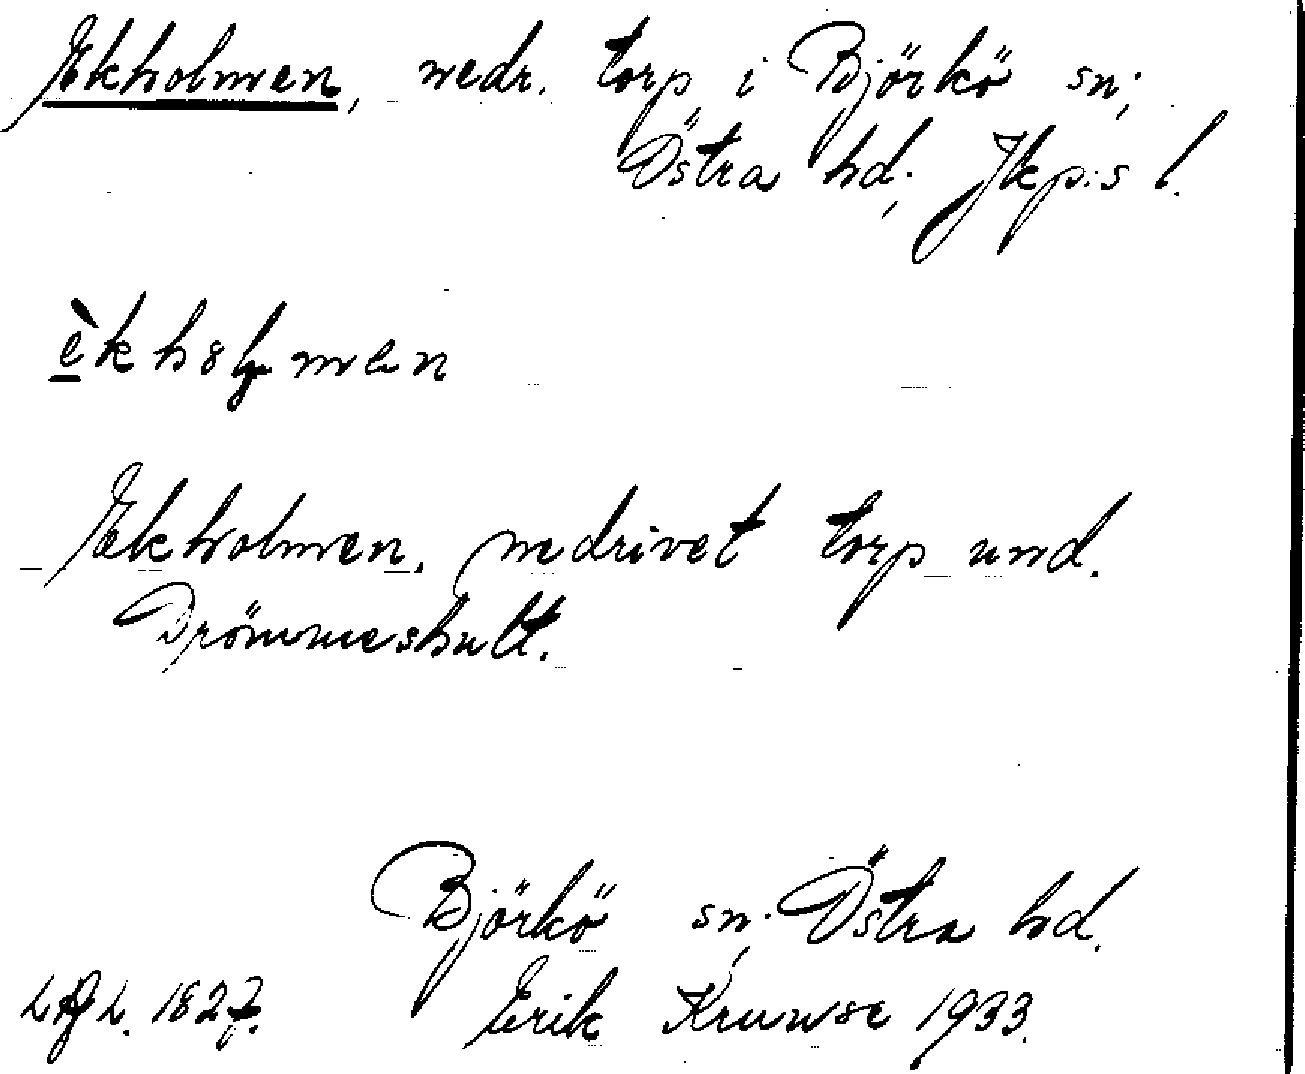 Ekholmen, nedr. torp i Björkö sn;
Östra hd; Jkp:s l.
èkholmen
Ekholmen, nedrivet torp und.
Drömmeshult.
Björkö sn; Östra hd.
1827. Erik Kruuse 1933.